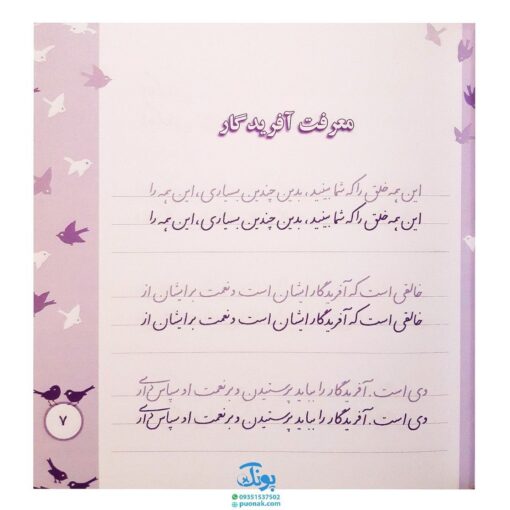 معرفت آفریدگار
این همه خلق را که شما بینید، بدین چندین بسیاری، این همه را
این همه خلق را که شما بینید، بدین چندین بسیاری، این همه را
خالقی است که آفریدگار ایشان است و نعمت بر ایشان از
خالقی است که آفریدگار ایشان است و نعمت بر ایشان از
وی است. آفریدگار را بباید پرستیدن و بر نعمت او سپاس داری
وی است. آفریدگار را بباید پرستیدن و بر نعمت او سپاس داری
۷
پونک
09351537502
puonak.com